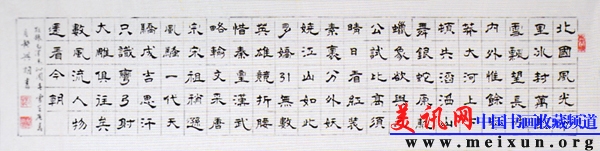 北國風光千
里冰封萬里
雪飄望長城
内外惟餘莽
莽大河上下
頓失滔滔山
舞銀蛇原馳
蠟象欲與天
公試比高須
晴日看紅裝
素裹分外妖
嬈江山如此
多嬌引無數
英雄競折腰
惜秦皇漢武
略輸文采唐
宗宋祖稍遜
風騷一代天
驕成吉思汗
只識彎弓射
大雕俱往矣
數風流人物
還看今朝
美讯网
中国书画收藏频道
www.meixun.org